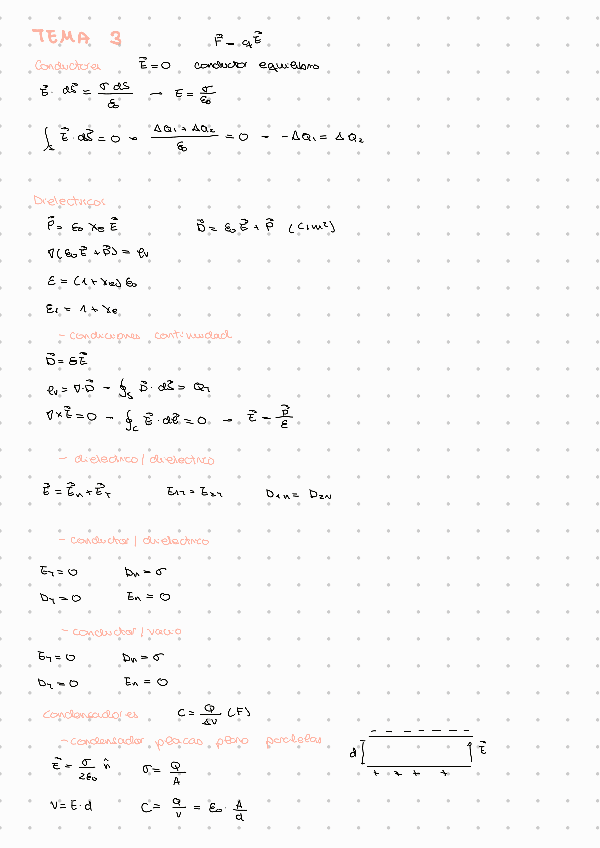 TEMA 3
F⃗ = q E⃗
Conductores E⃗ = 0 conductor equilibrio
E⃗ · dS⃗ = σ dS / ε₀ → E = σ / ε₀
∫ₛ E⃗ · dS⃗ = 0 → (ΔQ₁ + ΔQ₂) / ε₀ = 0 → -ΔQ₁ = ΔQ₂
Dielectricos
P⃗ = ε₀ χe E⃗ D⃗ = ε₀ E⃗ + P⃗ (C/m²)
∇(ε₀ E⃗ + P⃗) = ρv
ε = (1 + χe) ε₀
εr = 1 + χe
- condiciones continuidad
D⃗ = εE⃗
ρv = ∇·D⃗ → ∮s D⃗ · dS⃗ = QT
∇×E⃗ = 0 → ∮c E⃗ · dl⃗ = 0 → E⃗ = D⃗ / ε
- dielectrico / dielectrico
E⃗ = E⃗n + E⃗T E1T = E2T D1n = D2N
- conductor / dielectrico
ET = 0 Dn = σ
DT = 0 En = 0
- conductor / vacio
ET = 0 Dn = σ
DT = 0 En = 0
Condensadores C = Q / ΔV (F)
- condensador placas plano paralelas
d E⃗
E⃗ = σ / 2ε₀ n̂ σ = Q / A
V = E · d C = Q / V = ε₀ · A / d